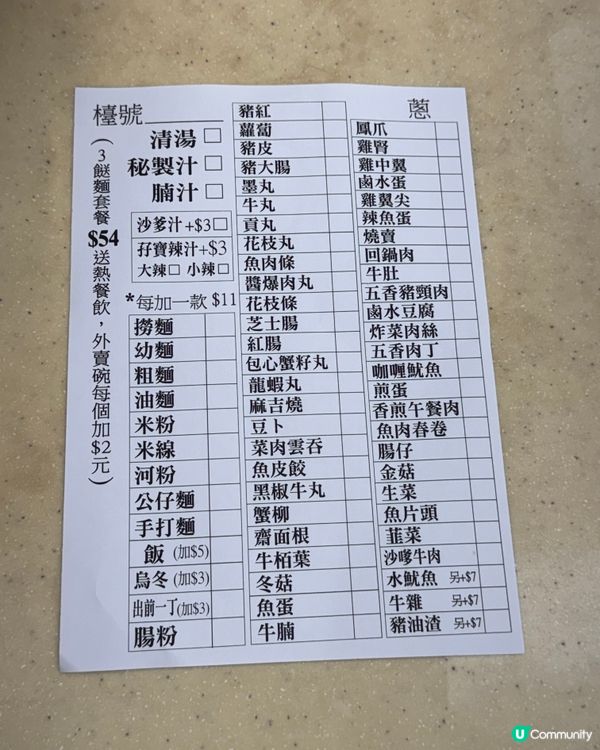 檯號
清湯
秘製汁
腩汁
沙爹汁+$3
孖寶辣汁+$3
大辣 小辣
(3餸麵套餐$54送熱餐飲,外賣碗每個加$2元)
*每加一款 $11
撈麵
幼麵
粗麵
油麵
米粉
米線
河粉
公仔麵
手打麵
飯 (加$5)
烏冬(加$3)
出前一丁(加$3)
腸粉
豬紅
蘿蔔
豬皮
豬大腸
墨丸
牛丸
貢丸
花枝丸
魚肉條
醬爆肉丸
花枝條
芝士腸
紅腸
包心蟹籽丸
龍蝦丸
麻吉燒
豆卜
菜肉雲吞
魚皮餃
黑椒牛丸
蟹柳
齋面根
牛栢葉
冬菇
魚蛋
牛腩
蔥
鳳爪
雞腎
雞中翼
鹵水蛋
雞翼尖
辣魚蛋
燒賣
回鍋肉
牛肚
五香豬頸肉
鹵水豆腐
炸菜肉絲
五香肉丁
咖喱魷魚
煎蛋
香煎午餐肉
魚肉春卷
腸仔
金菇
生菜
魚片頭
韮菜
沙嗲牛肉
水魷魚 另+$7
牛雜 另+$7
豬油渣 另+$7
U Community